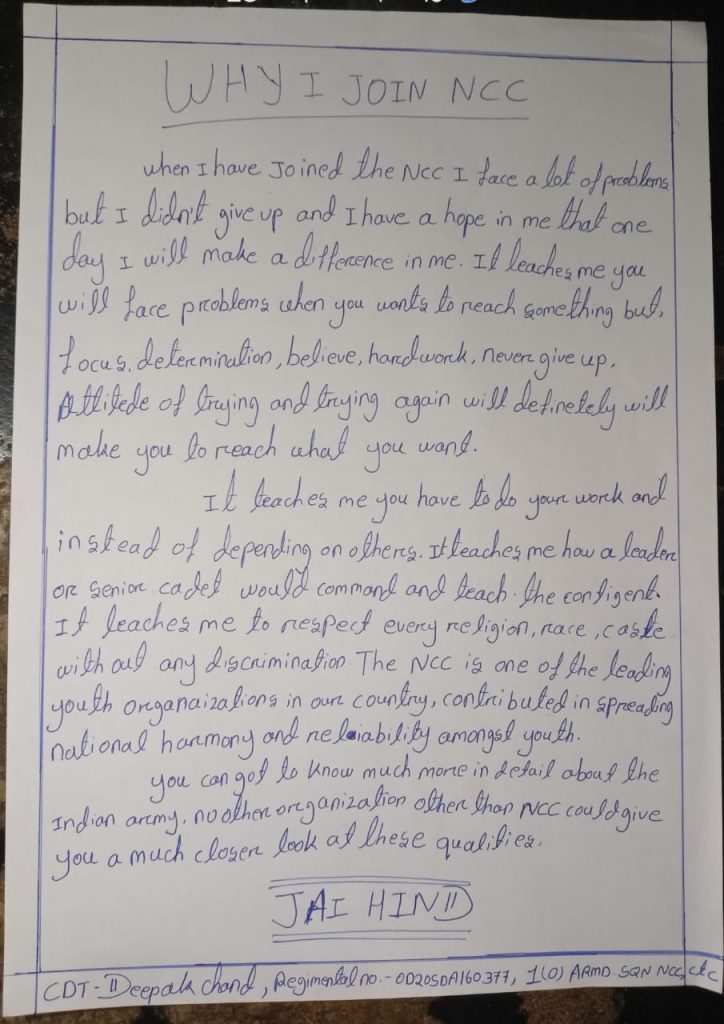 WHY I JOIN NCC
when I have Joined the NCC I face a lot of problems
but I didn't give up and I have a hope in me that one
day I will make a difference in me. It teaches me you
will face problems when you wants to reach something but,
focus, determination, believe, hardwork, never give up,
Attitede of trying and trying again will definetely will
make you to reach what you want.
It teaches me you have to do your work and
instead of depending on others. It teaches me how a leader
or senior cadet would command and teach the contigent.
It teaches me to respect every religion, race, caste
without any discrimination. The NCC is one of the leading
youth organaizations in our country, contributed in spreading
national harmony and reliability amongst youth.
you can got to know much more in detail about the
Indian army, no other organization other than NCC could give
you a much closer look at these qualities.
JAI HIND
CDT- Deepak chand, Regimental no.- OD20SDA160377, 1(O) ARMD. SQN NCC, CTC